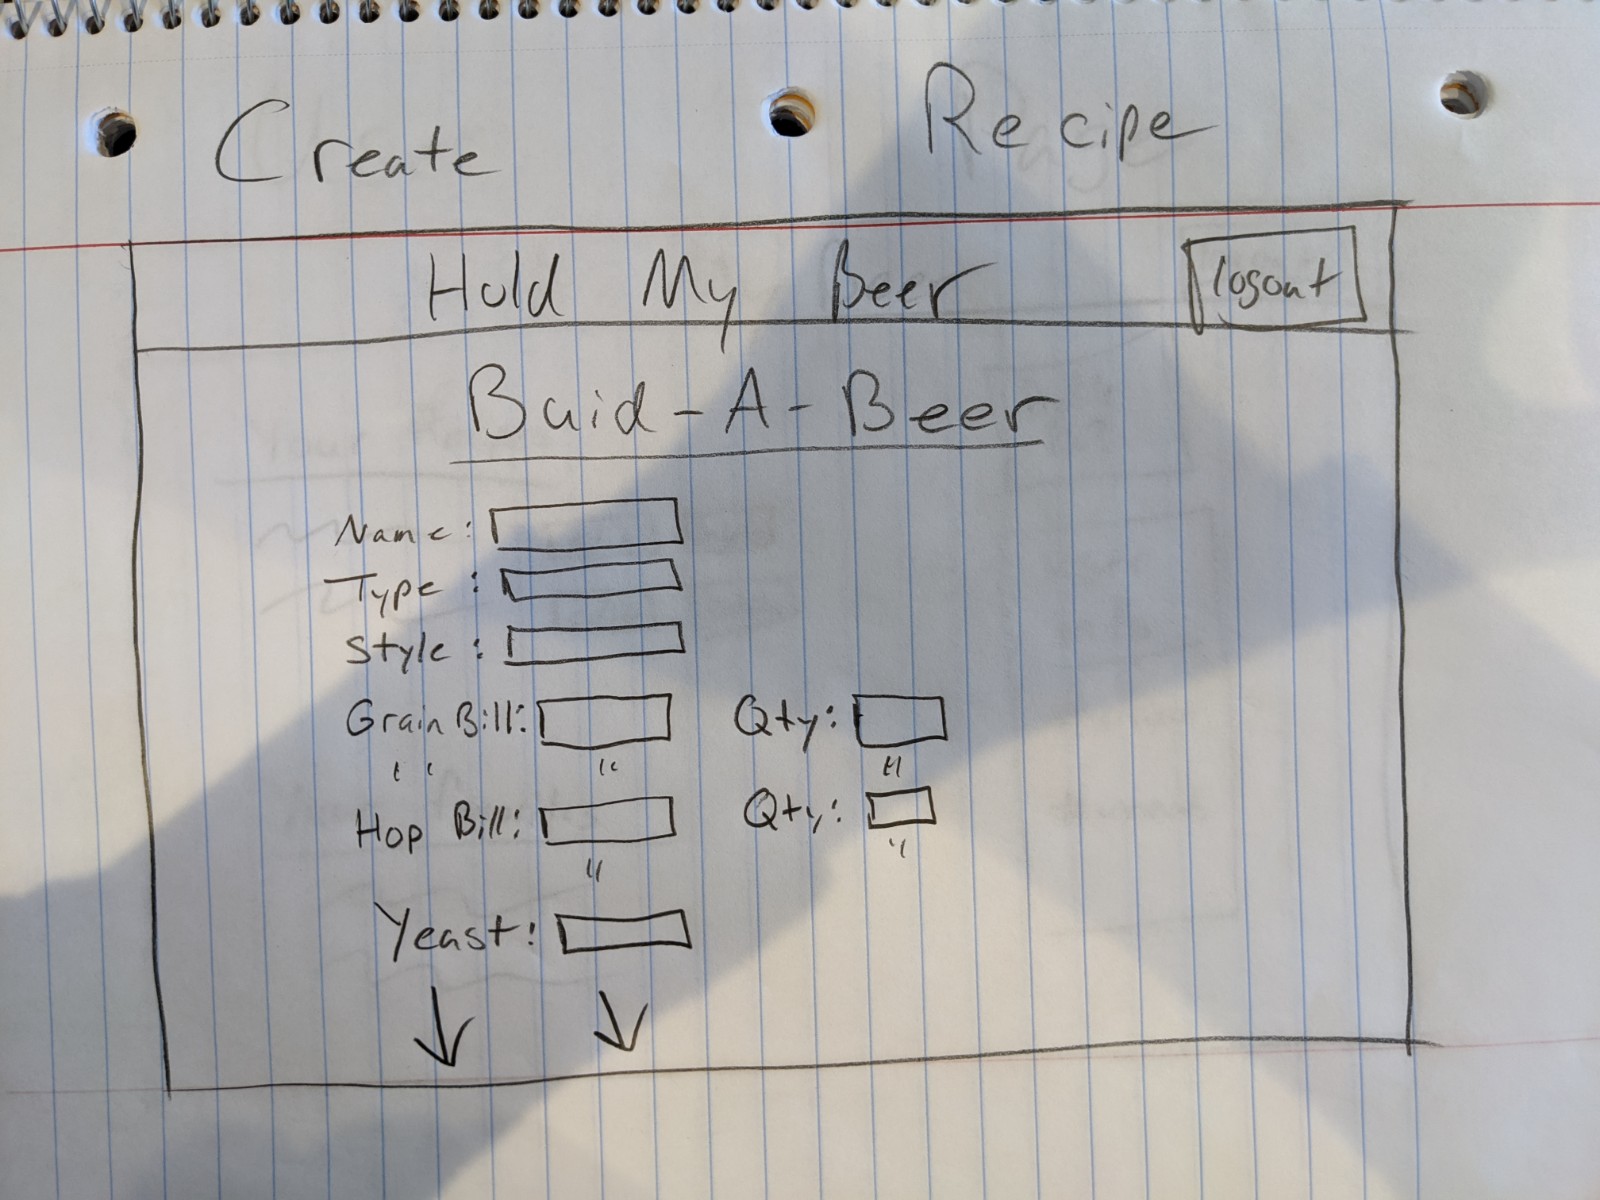 Create Recipe
Hold My Beer logout
Buid-A-Beer
Name:
Type:
Style:
Grain Bill: Qty:
" " "
Hop Bill: Qty:
" "
Yeast: